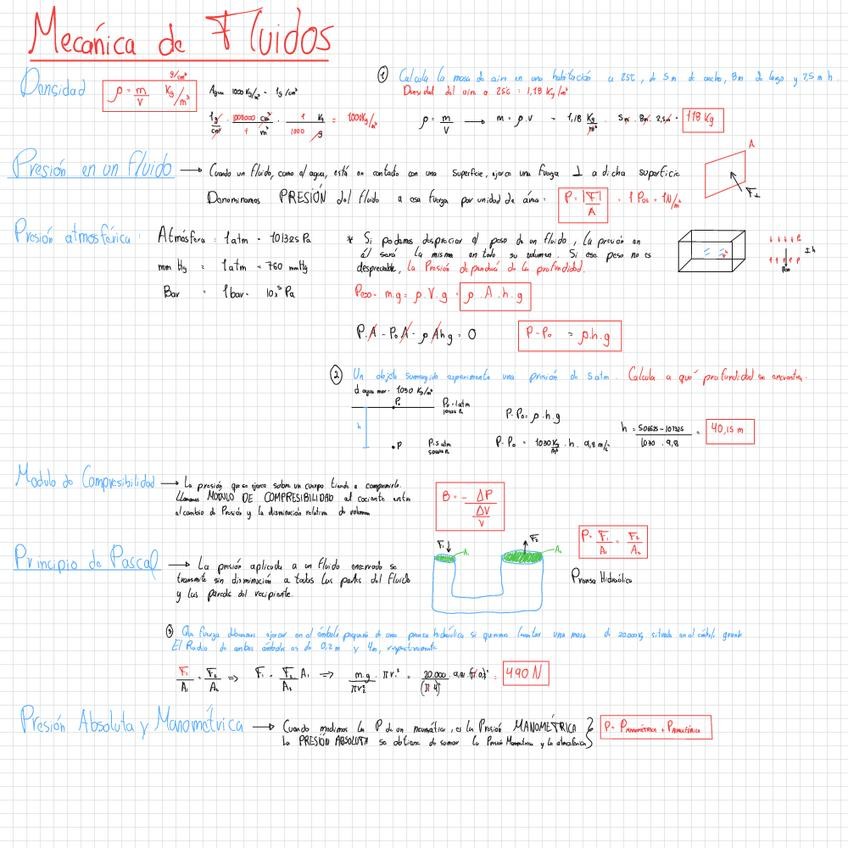 Mecánica de Fluidos
Densidad
ρ = m/V g/cm³ Kg/m³
Agua 1000 Kg/m³ = 1g/cm³
1g/cm³ · 1000000 cm³/1 m³ · 1 Kg/1000 g = 1000Kg/m³
① Calcula la masa de aire en una habitación a 25℃, de 5m de ancho, 8m de largo y 2,5m h.
Densidad del aire a 25℃ = 1,18 Kg/m³
ρ = m/V → m = ρ.V = 1,18 Kg/m³ · 5m · 8m · 2,5m = 118 Kg
Presión en un fluido → Cuando un fluido, como el agua, está en contacto con una superficie, ejerce una fuerza ⊥ a dicha superficie
Denominamos PRESIÓN del fluido a esa fuerza por unidad de área: P = |F|/A = 1 Pa = 1N/m²
A
F⊥
Presión atmosférica:
Atmósfera = 1atm = 101325 Pa
mm Hg = 1atm = 760 mmHg
Bar = 1bar = 10⁵ Pa
* Si podemos despreciar el peso de un fluido, la presión en
él será la misma en todo su volumen. Si ese peso no es
despreciable, la Presión dependerá de la profundidad.
Peso = m.g = ρ.V.g = ρ.A.h.g
P.A - P₀A - ρAhg = 0
P-P₀ = ρ.h.g
② Un objeto sumergido experimenta una presión de 5atm. Calcula a qué profundidad se encuentra.
d agua mar = 1030 Kg/m³
P₀
P₀ = 1atm
h
P
P = 5 atm
P-P₀ = ρ.h.g
P-P₀ = 1030 Kg/m³ . h . 9,8 m/s²
h = 506625-101325/1030 . 9,8 = 40,15 m
Modulo de Compresibilidad → La presión que se ejerce sobre un cuerpo tiende a comprimirlo.
Llamamos MÓDULO DE COMPRESIBILIDAD al cociente entre
el cambio de Presión y la disminución relativa de volumen
B = - ΔP/(ΔV/V)
Principio de Pascal → La presión aplicada a un fluido encerrado se
transmite sin disminución a todas las partes del Fluido
y las paredes del recipiente.
F₁
A₁
F₂
A₂
P = F₁/A₁ = F₂/A₂
Prensa Hidráulica
③ Qué fuerza debemos ejercer en el émbolo pequeño de una prensa hidráulica si queremos levantar una masa de 20.000Kg situada en el émbolo grande
El Radio de ambos émbolos es de 0,2m y 4m, respectivamente
F₁/A₁ = F₂/A₂ ⇒ F₁ = F₂/A₂ A₁ ⇒ m.g/πr₂² · πr₁² = = 490 N
Presión Absoluta y Manométrica → Cuando medimos la P de un neumático, es la Presión MANOMÉTRICA
La PRESIÓN ABSOLUTA se obtiene de sumar la Presión Manométrica y la atmosférica
P = PMANOMÉTRICA + PATMOSFÉRICA